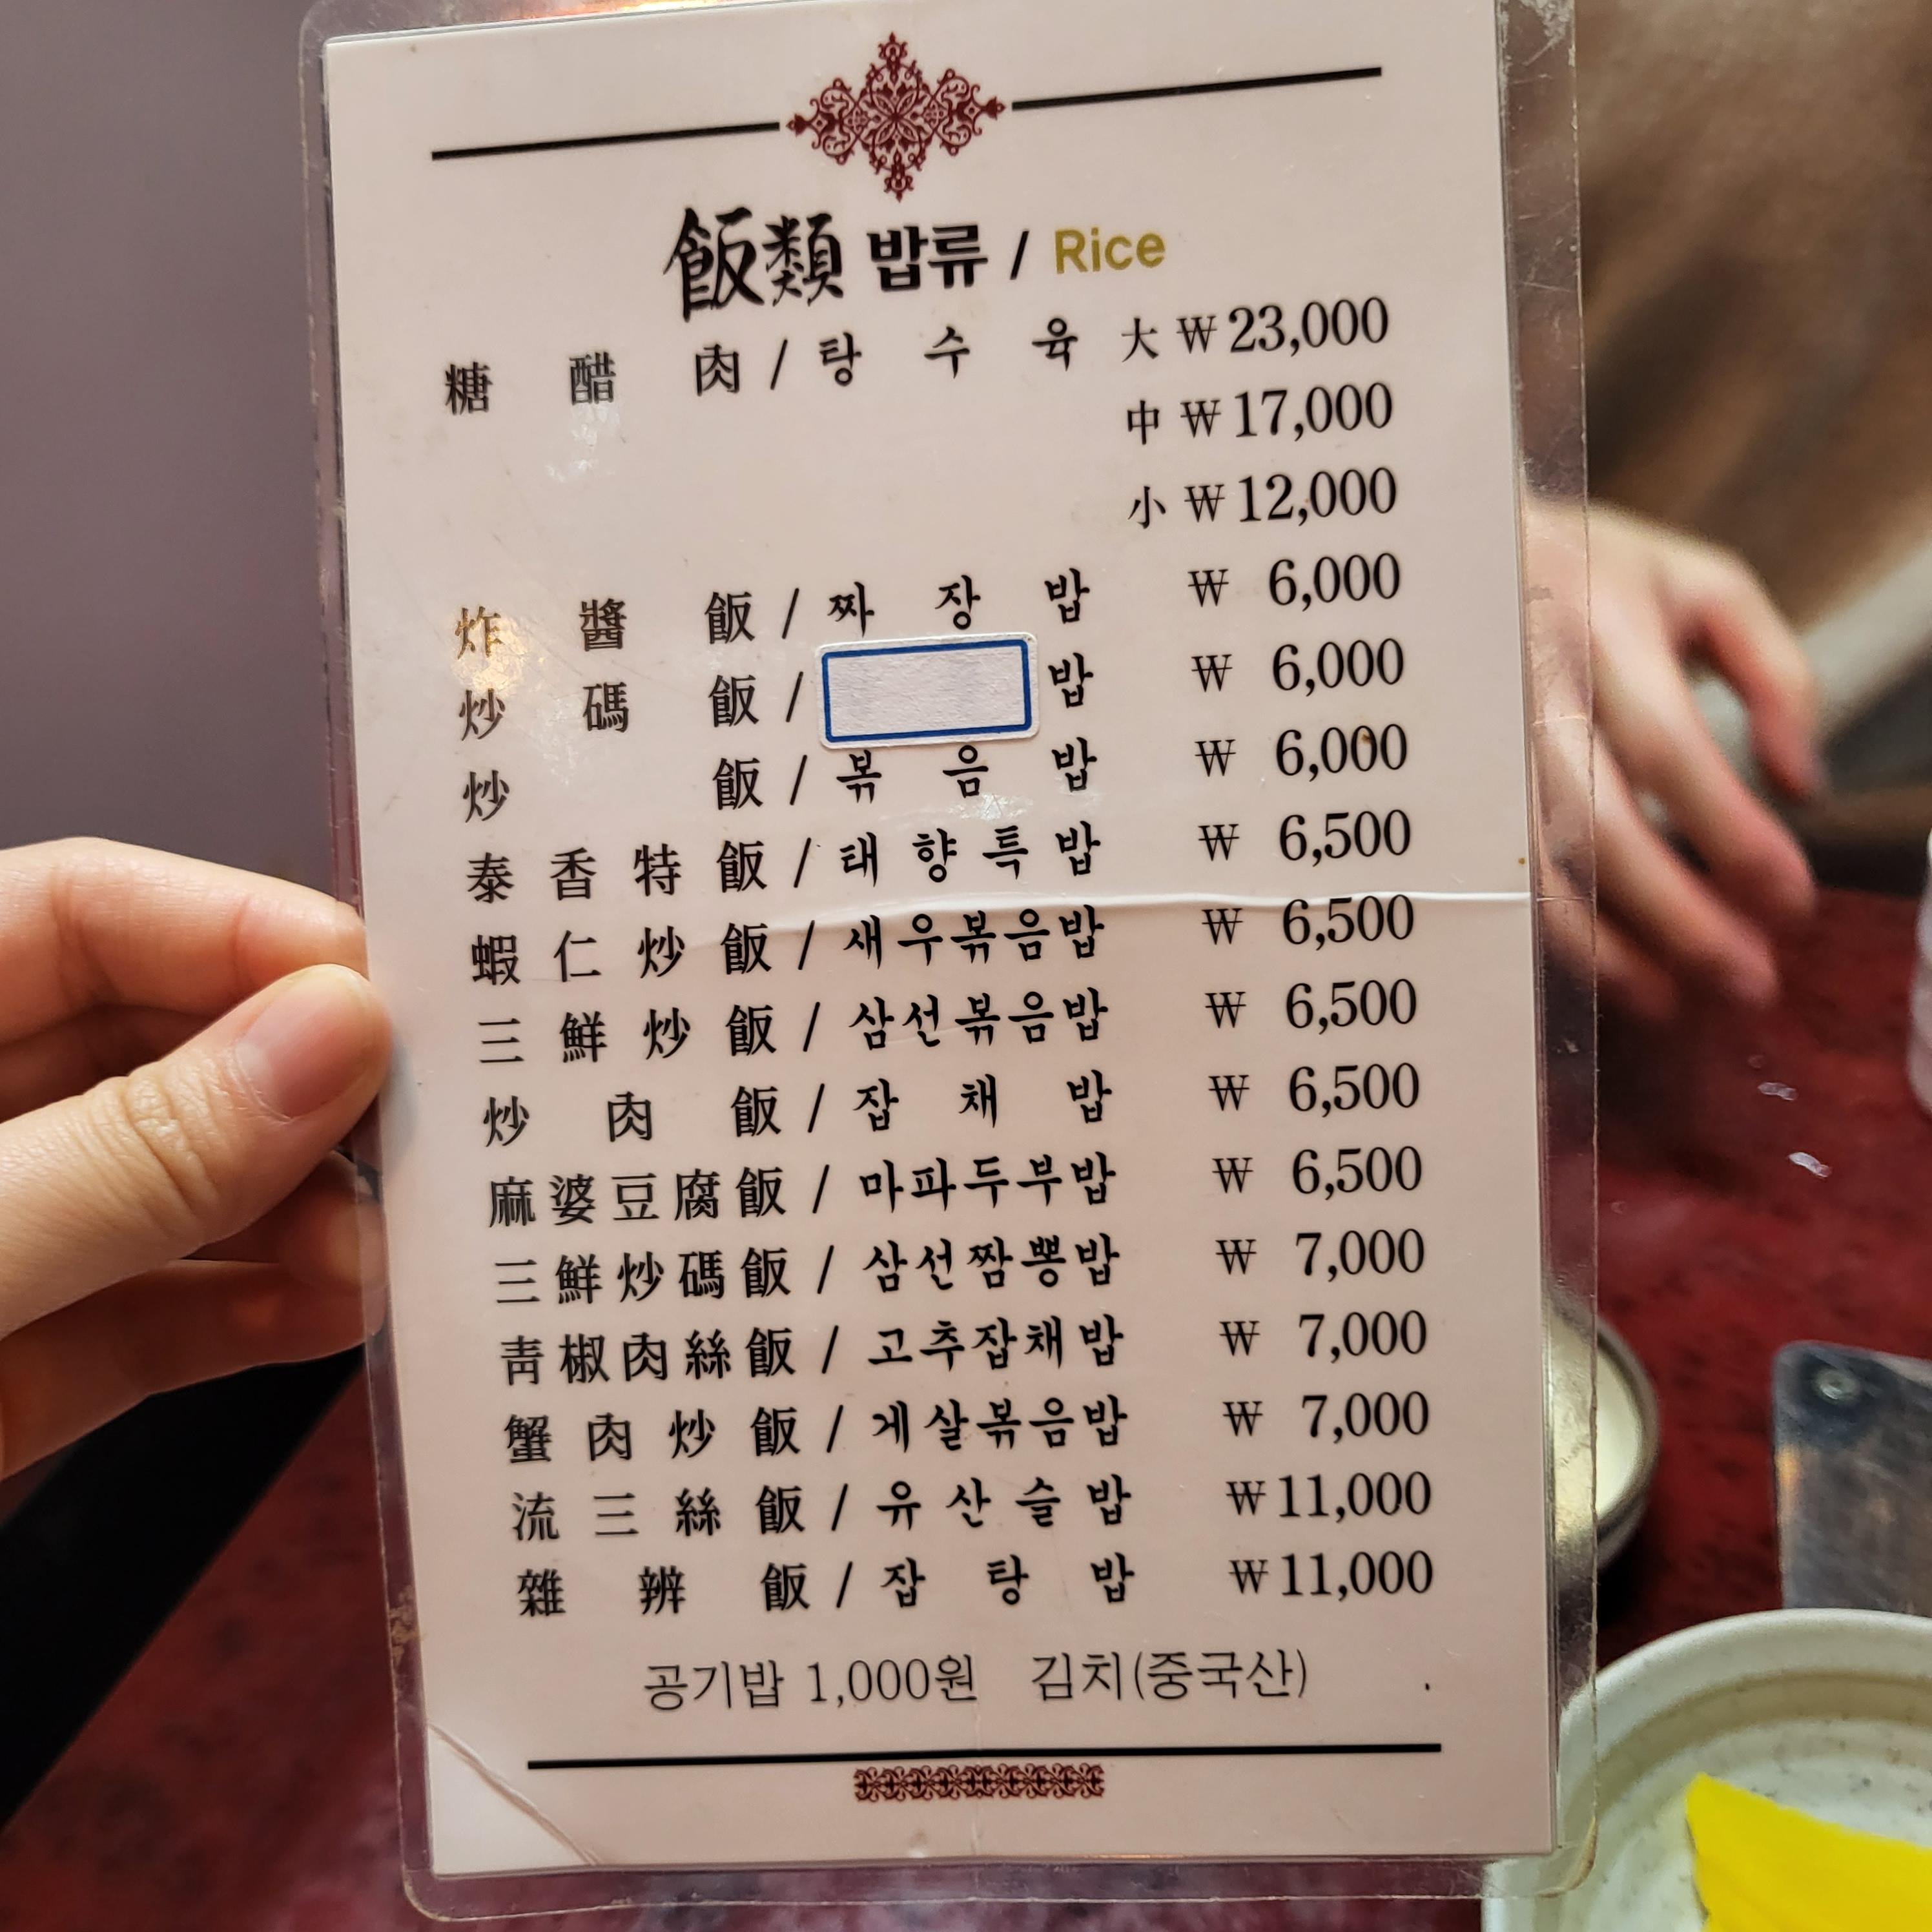 飯類 밥류 / Rice
糖醋肉 / 탕수육 大 ₩ 23,000
中 ₩ 17,000
小 ₩ 12,000
炸醬飯 / 짜장밥 ₩ 6,000
炒碼飯 / 밥 ₩ 6,000
炒飯 / 볶음밥 ₩ 6,000
泰香特飯 / 태향특밥 ₩ 6,500
蝦仁炒飯 / 새우볶음밥 ₩ 6,500
三鮮炒飯 / 삼선볶음밥 ₩ 6,500
炒肉飯 / 잡채밥 ₩ 6,500
麻婆豆腐飯 / 마파두부밥 ₩ 6,500
三鮮炒碼飯 / 삼선짬뽕밥 ₩ 7,000
靑椒肉絲飯 / 고추잡채밥 ₩ 7,000
蟹肉炒飯 / 게살볶음밥 ₩ 7,000
流三絲飯 / 유산슬밥 ₩ 11,000
雜辨飯 / 잡탕밥 ₩ 11,000
공기밥 1,000원 김치(중국산)